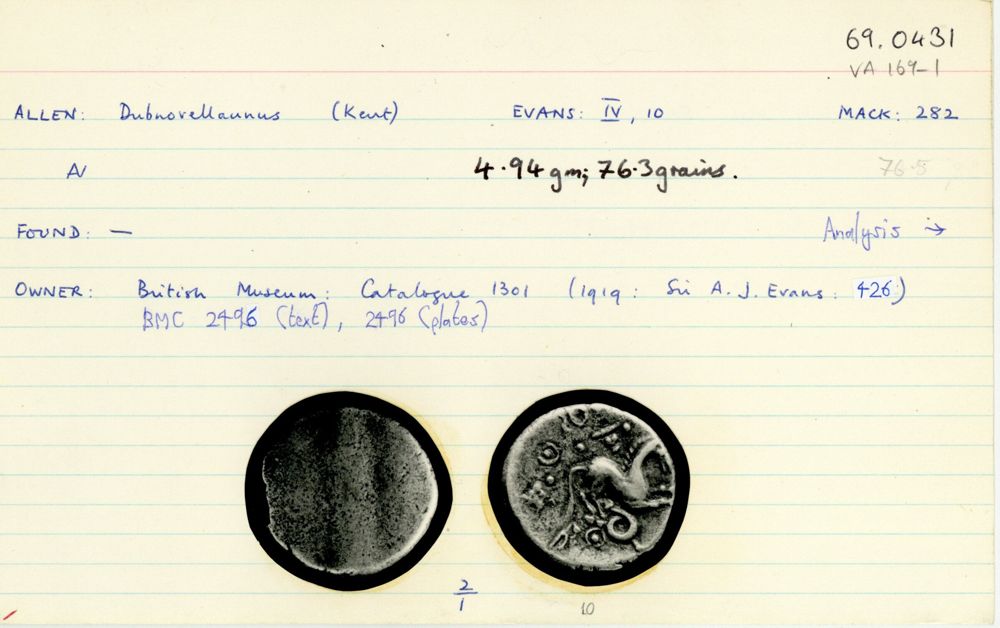 69.0431
VA 169-1
ALLEN: Dubnovellaunus (Kent) EVANS: IV, 10 MACK: 282
4.94 gm; 76.3 grains. 76.5
FOUND: — Analysis →
OWNER: British Museum: Catalogue 1301 (1919: Sir A. J. Evans: 426)
BMC 2496 (text), 2496 (plates)
2/1
10